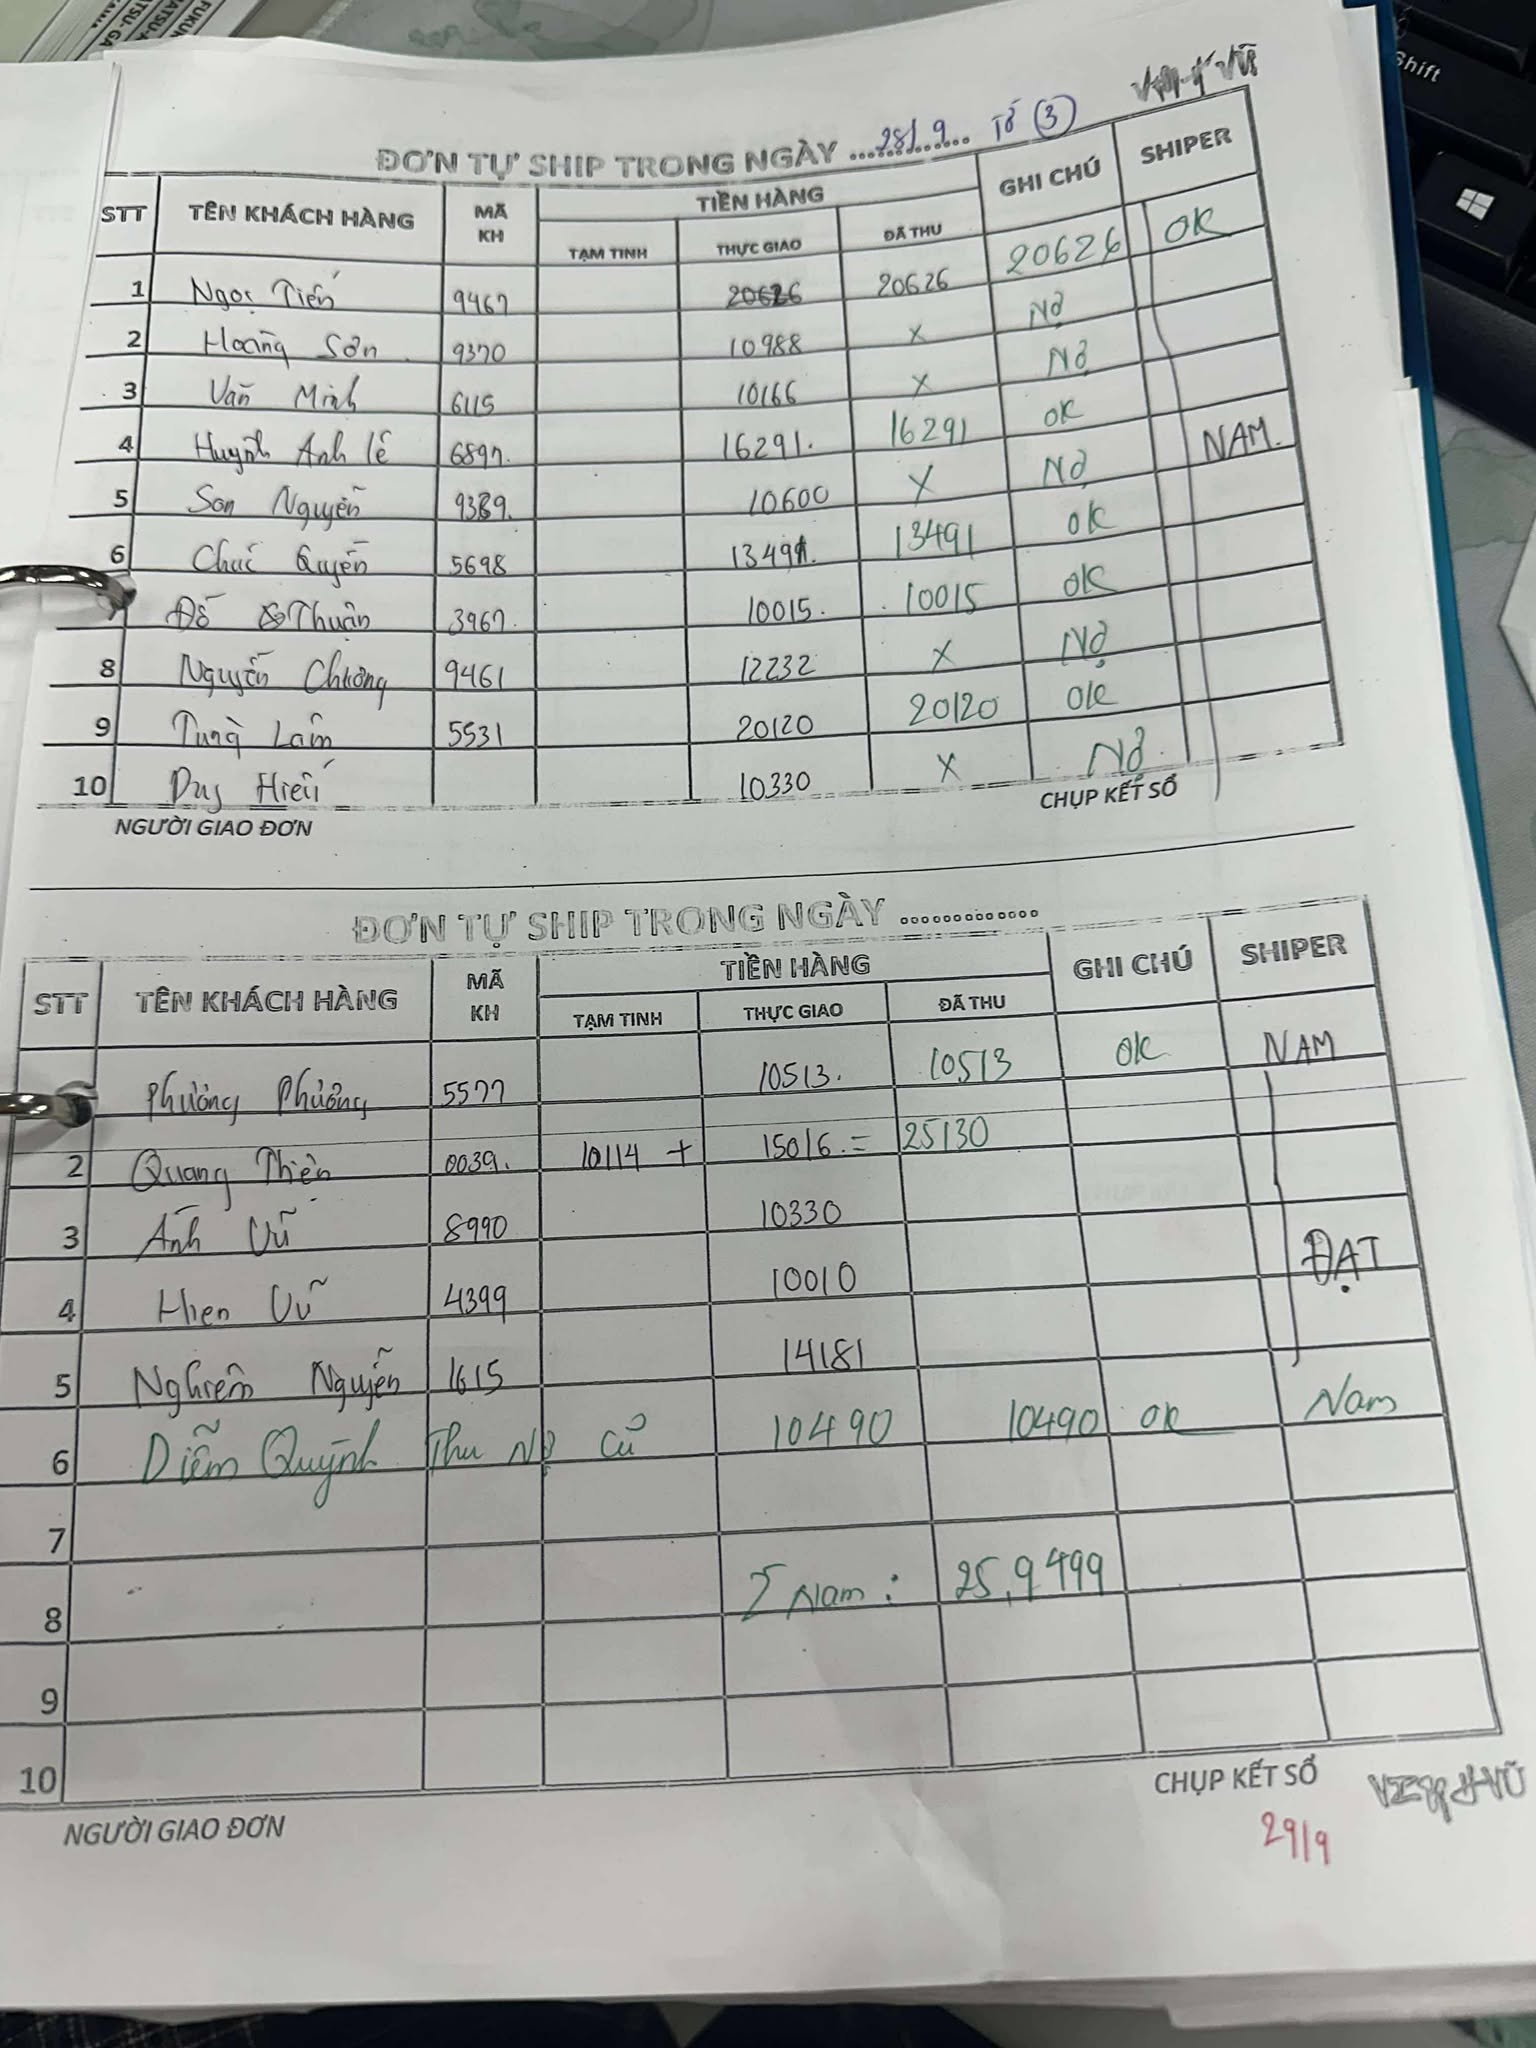 28/9 Tổ 3
ĐƠN TỰ SHIP TRONG NGÀY
STT TÊN KHÁCH HÀNG MÃ KH TIỀN HÀNG GHI CHÚ SHIPER
TẠM TINH THỰC GIAO ĐÃ THU
1 Ngọc Tiến 9467 20626 20626 20626 OK
2 Hoàng Sơn 9370 10988 X Nợ
3 Văn Minh 6115 10166 X Nợ
4 Huỳnh Anh lê 6897. 16291. 16291 OK NAM.
5 Sơn Nguyễn 9389. 10600 X Nợ
6 Chúc Quyên 5698 13491. 13491 OK
7 Đỗ Thuận 3967. 10015. 10015 OK
8 Nguyễn Chương 9461 12232 X Nợ
9 Tùng Lâm 5531 20120 20120 OK
10 Duy Hiếu 10330 X Nợ
NGƯỜI GIAO ĐƠN CHỤP KẾT SỔ
ĐƠN TỰ SHIP TRONG NGÀY ..............
STT TÊN KHÁCH HÀNG MÃ KH TIỀN HÀNG GHI CHÚ SHIPER
TẠM TINH THỰC GIAO ĐÃ THU
Phương Phương 5577 10513. 10513 OK NAM
2 Quang Thiên 0039. 10114 + 15016. = 25130
3 Ánh Vũ 8990 10330
4 Hien Vũ 4399 10010 ĐẠT
5 Nghiêm Nguyễn 1615 14181
6 Diễm Quỳnh Thu Nợ Cũ 10490 10490 OK Nam
7
8 Σ Nam : 25,9499
9
10
NGƯỜI GIAO ĐƠN CHỤP KẾT SỔ
29/9